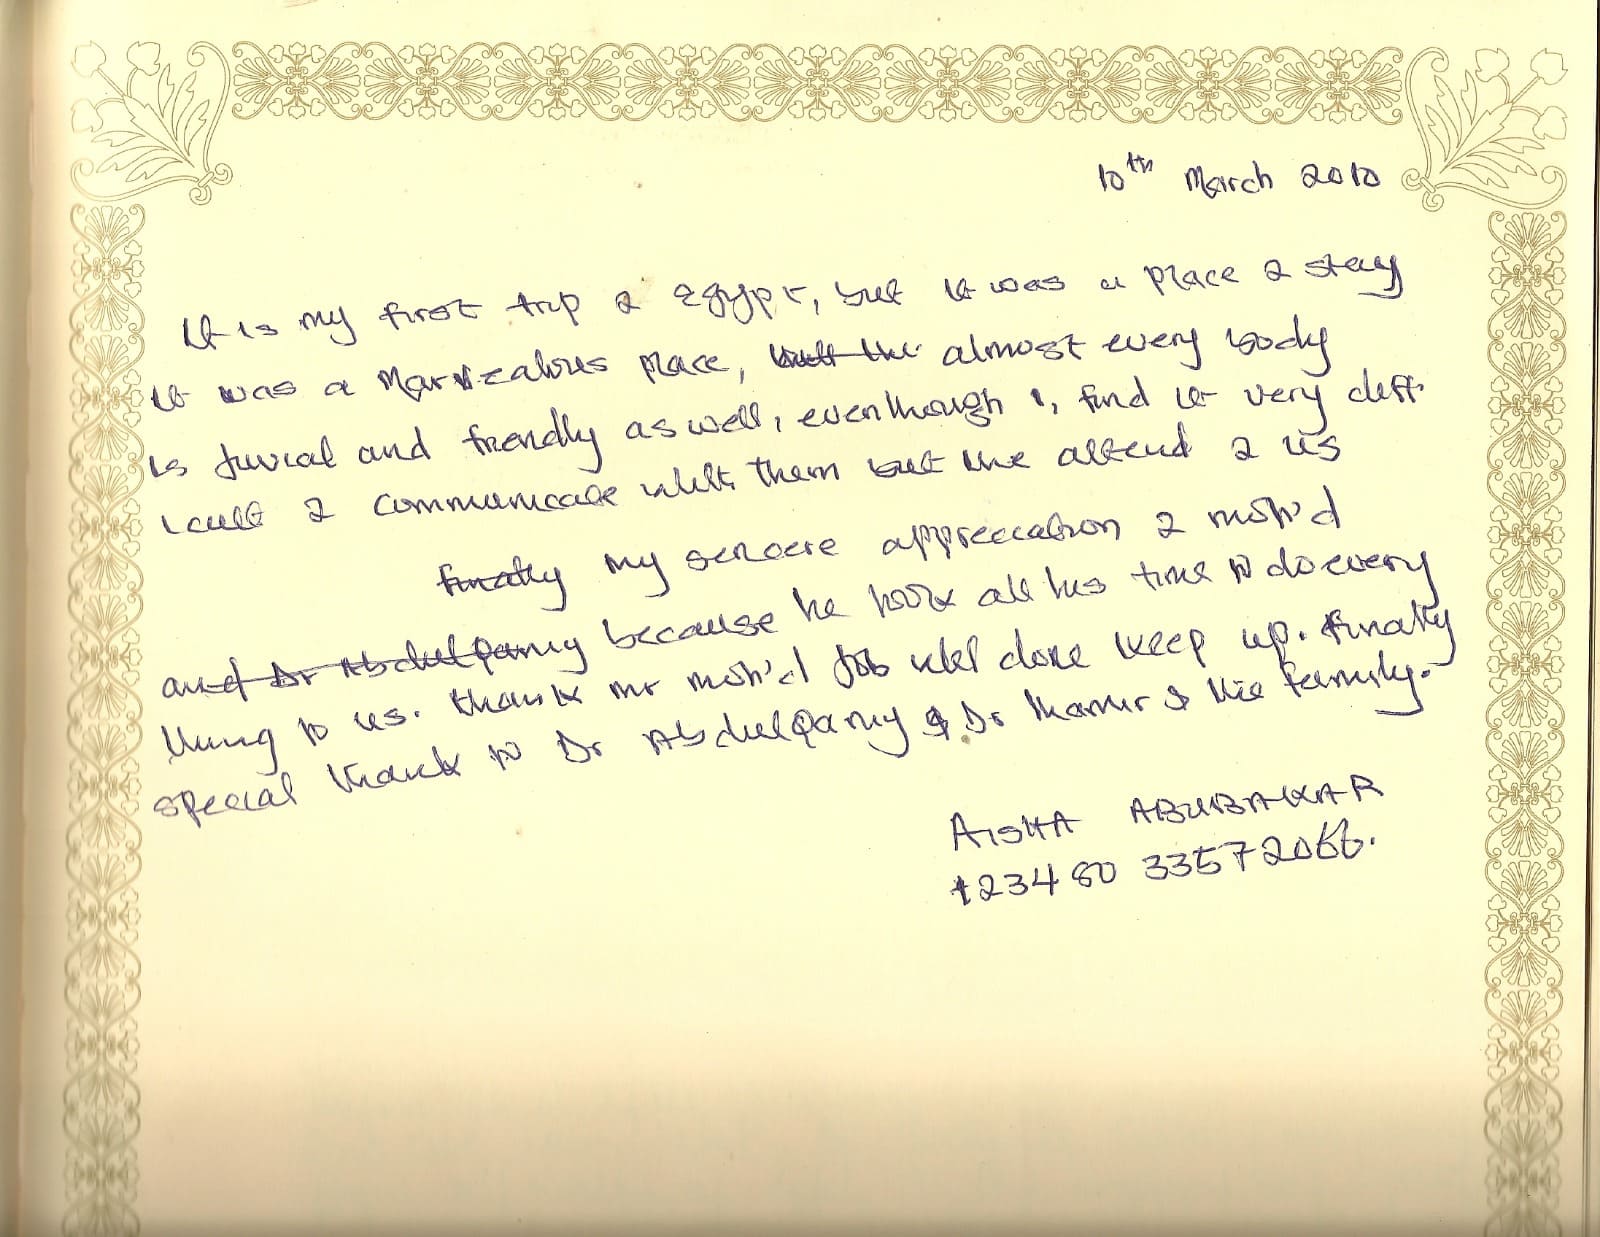 10th March 2010
It is my first trip 2 Egypt, but it was a place 2 stay
it was a Marvealous place, almost every body
is juvial and friendly as well, eventhough I, find it very diffi
cult 2 communicate with them but the attend 2 us
my sencere appreecation 2 Moh'd
because he took all his time to do every
thing to us. thank Mr Moh'd Job wel done keep up. finally
special thank to Dr Abdulganiy & Dr Thamir & his family.
AISHA ABUBAKAR
+234 80 33572066.